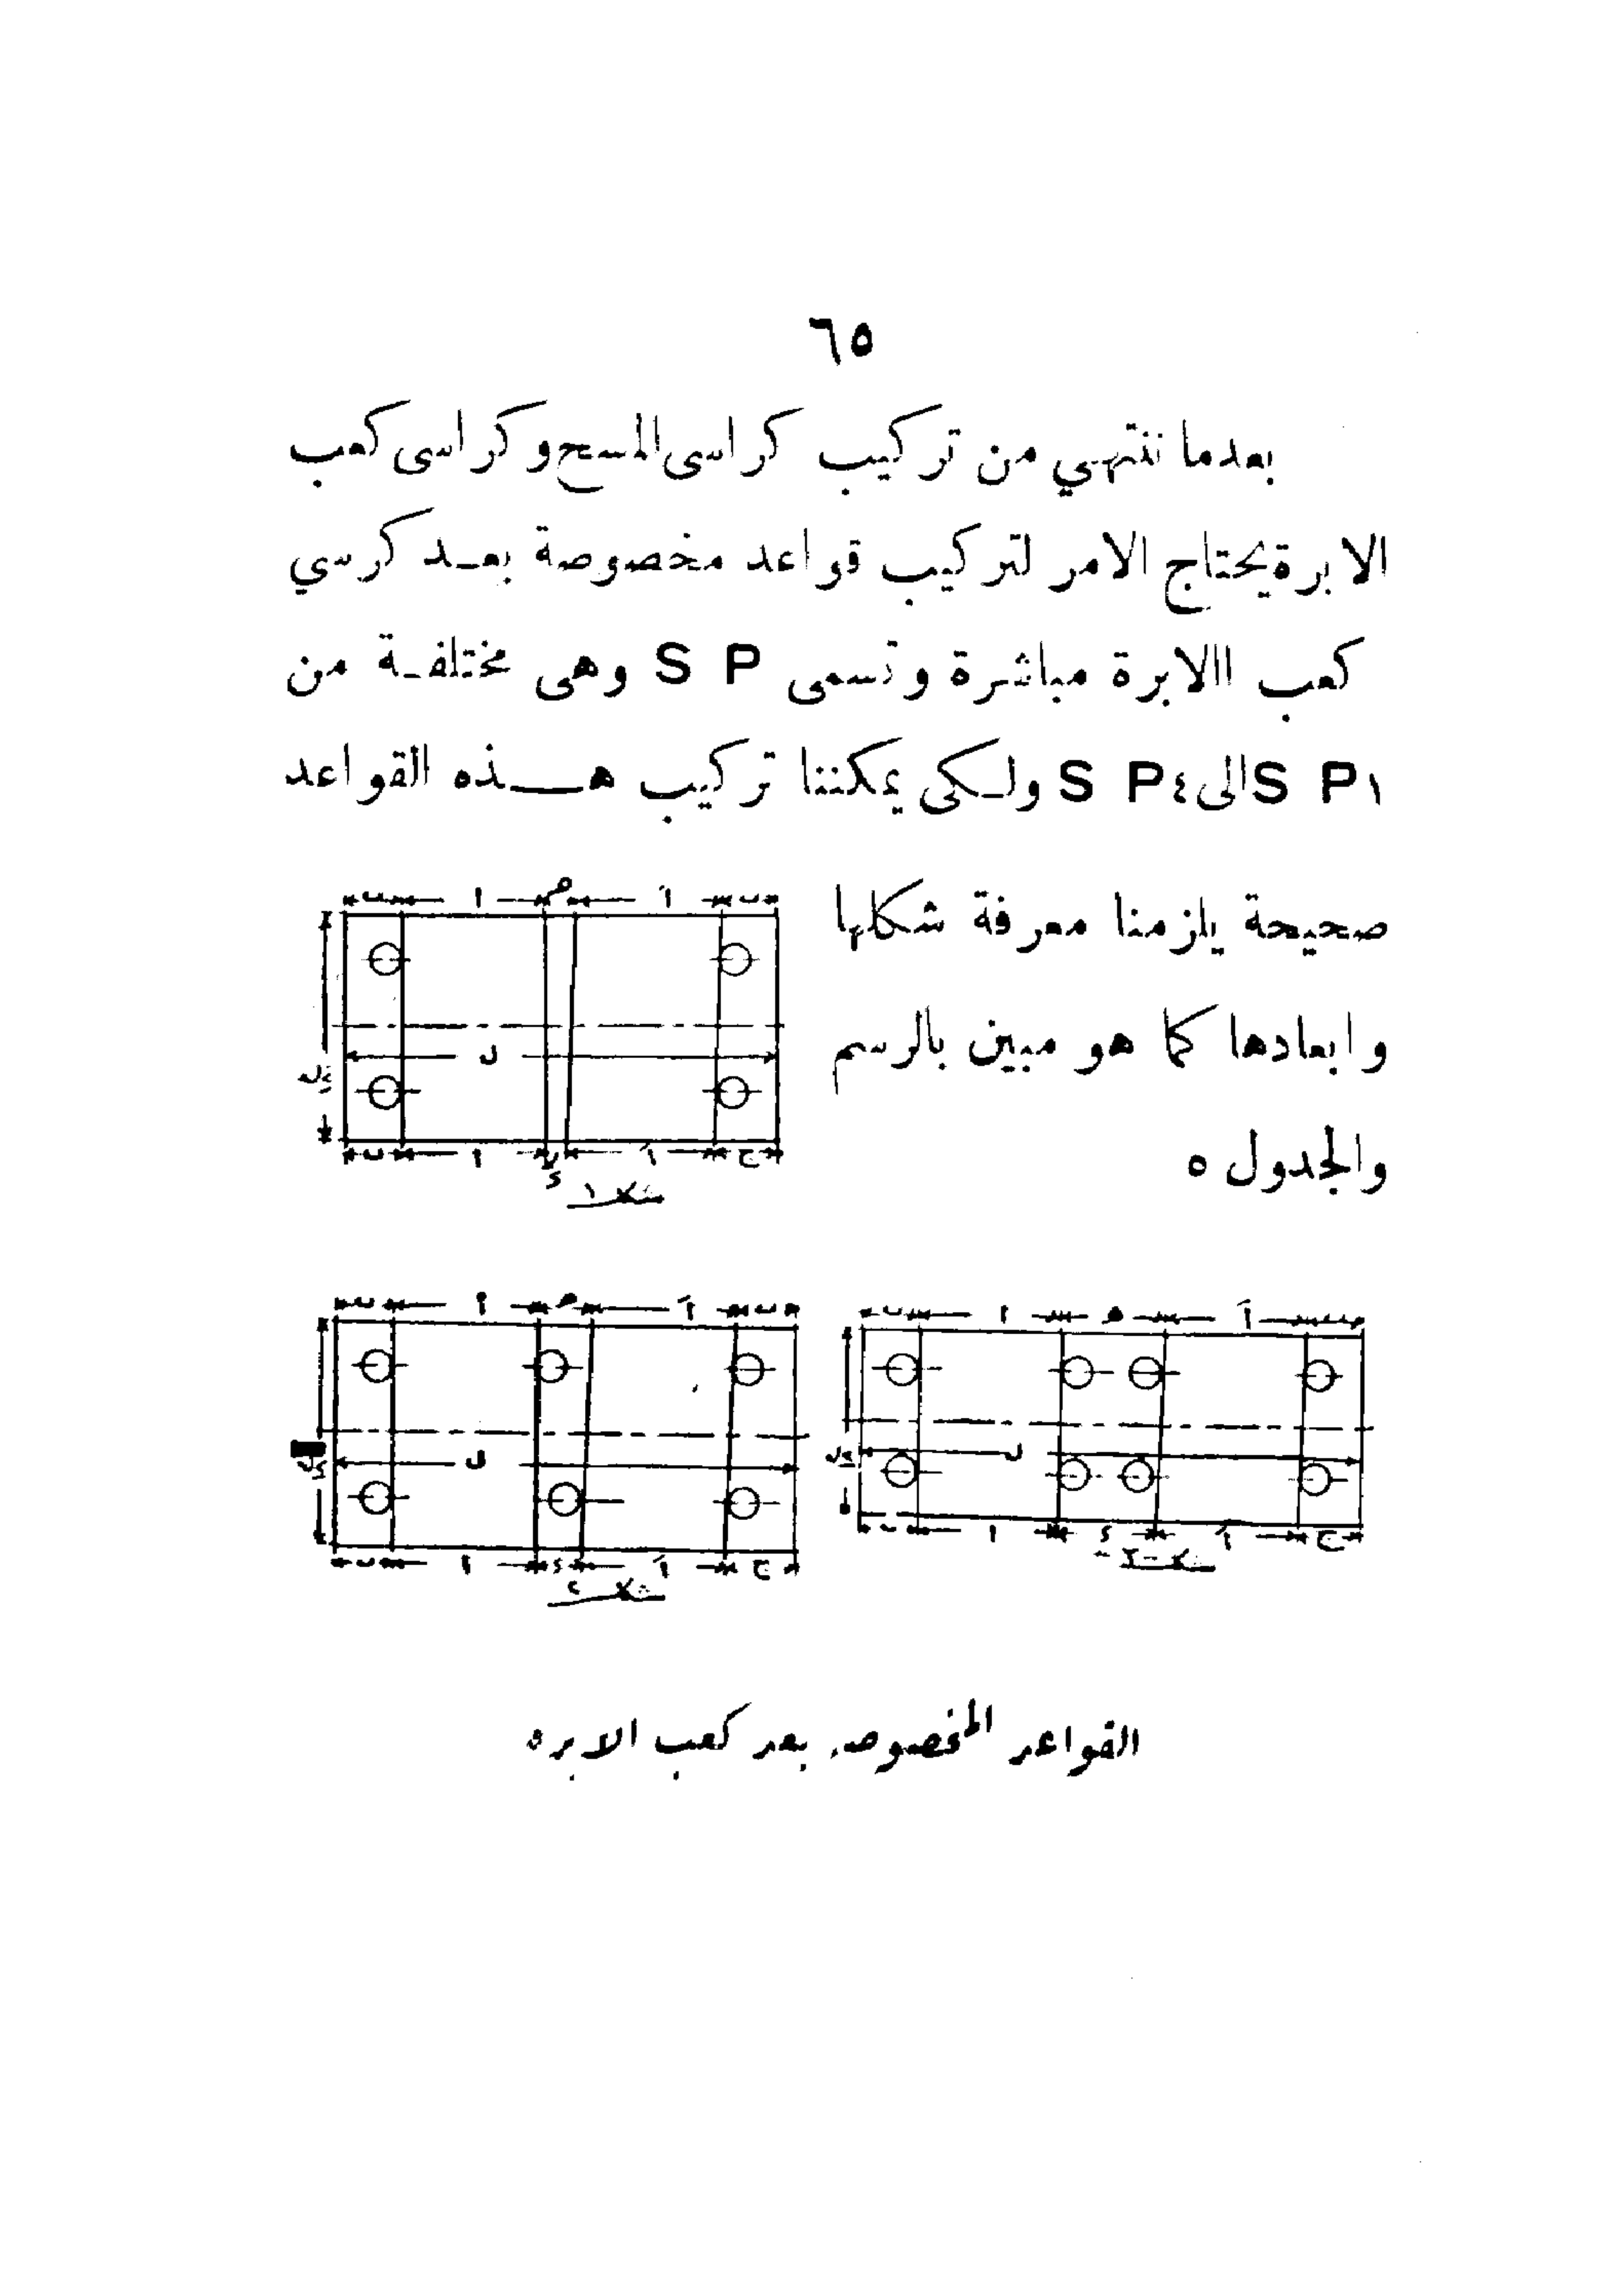 ٦٥
بعدما ننتهي من تركيب كراسى المسح وكراسى كعب
الابرة يحتاج الامر لتركيب قواعد مخصوصة بعد كرسي
كعب االابرة مباشرة وتسمى S P وهى مختلفة من
S P١ الى S P٤ ولكى يمكننا تركيب هذه القواعد
صحيحة يلزمنا معرفة شكلها
وابعادها كما هو مبين بالرسم
والجدول ٥
ب ا م اَ ب
ل
ب ا د اَ ج
شكل ١
ب ا م اَ ب
ل
ب ا د اَ ج
ب ا ه اَ ب
ل
ب ا د اَ ج
القواعد المخصوصه بعد كعب الابره